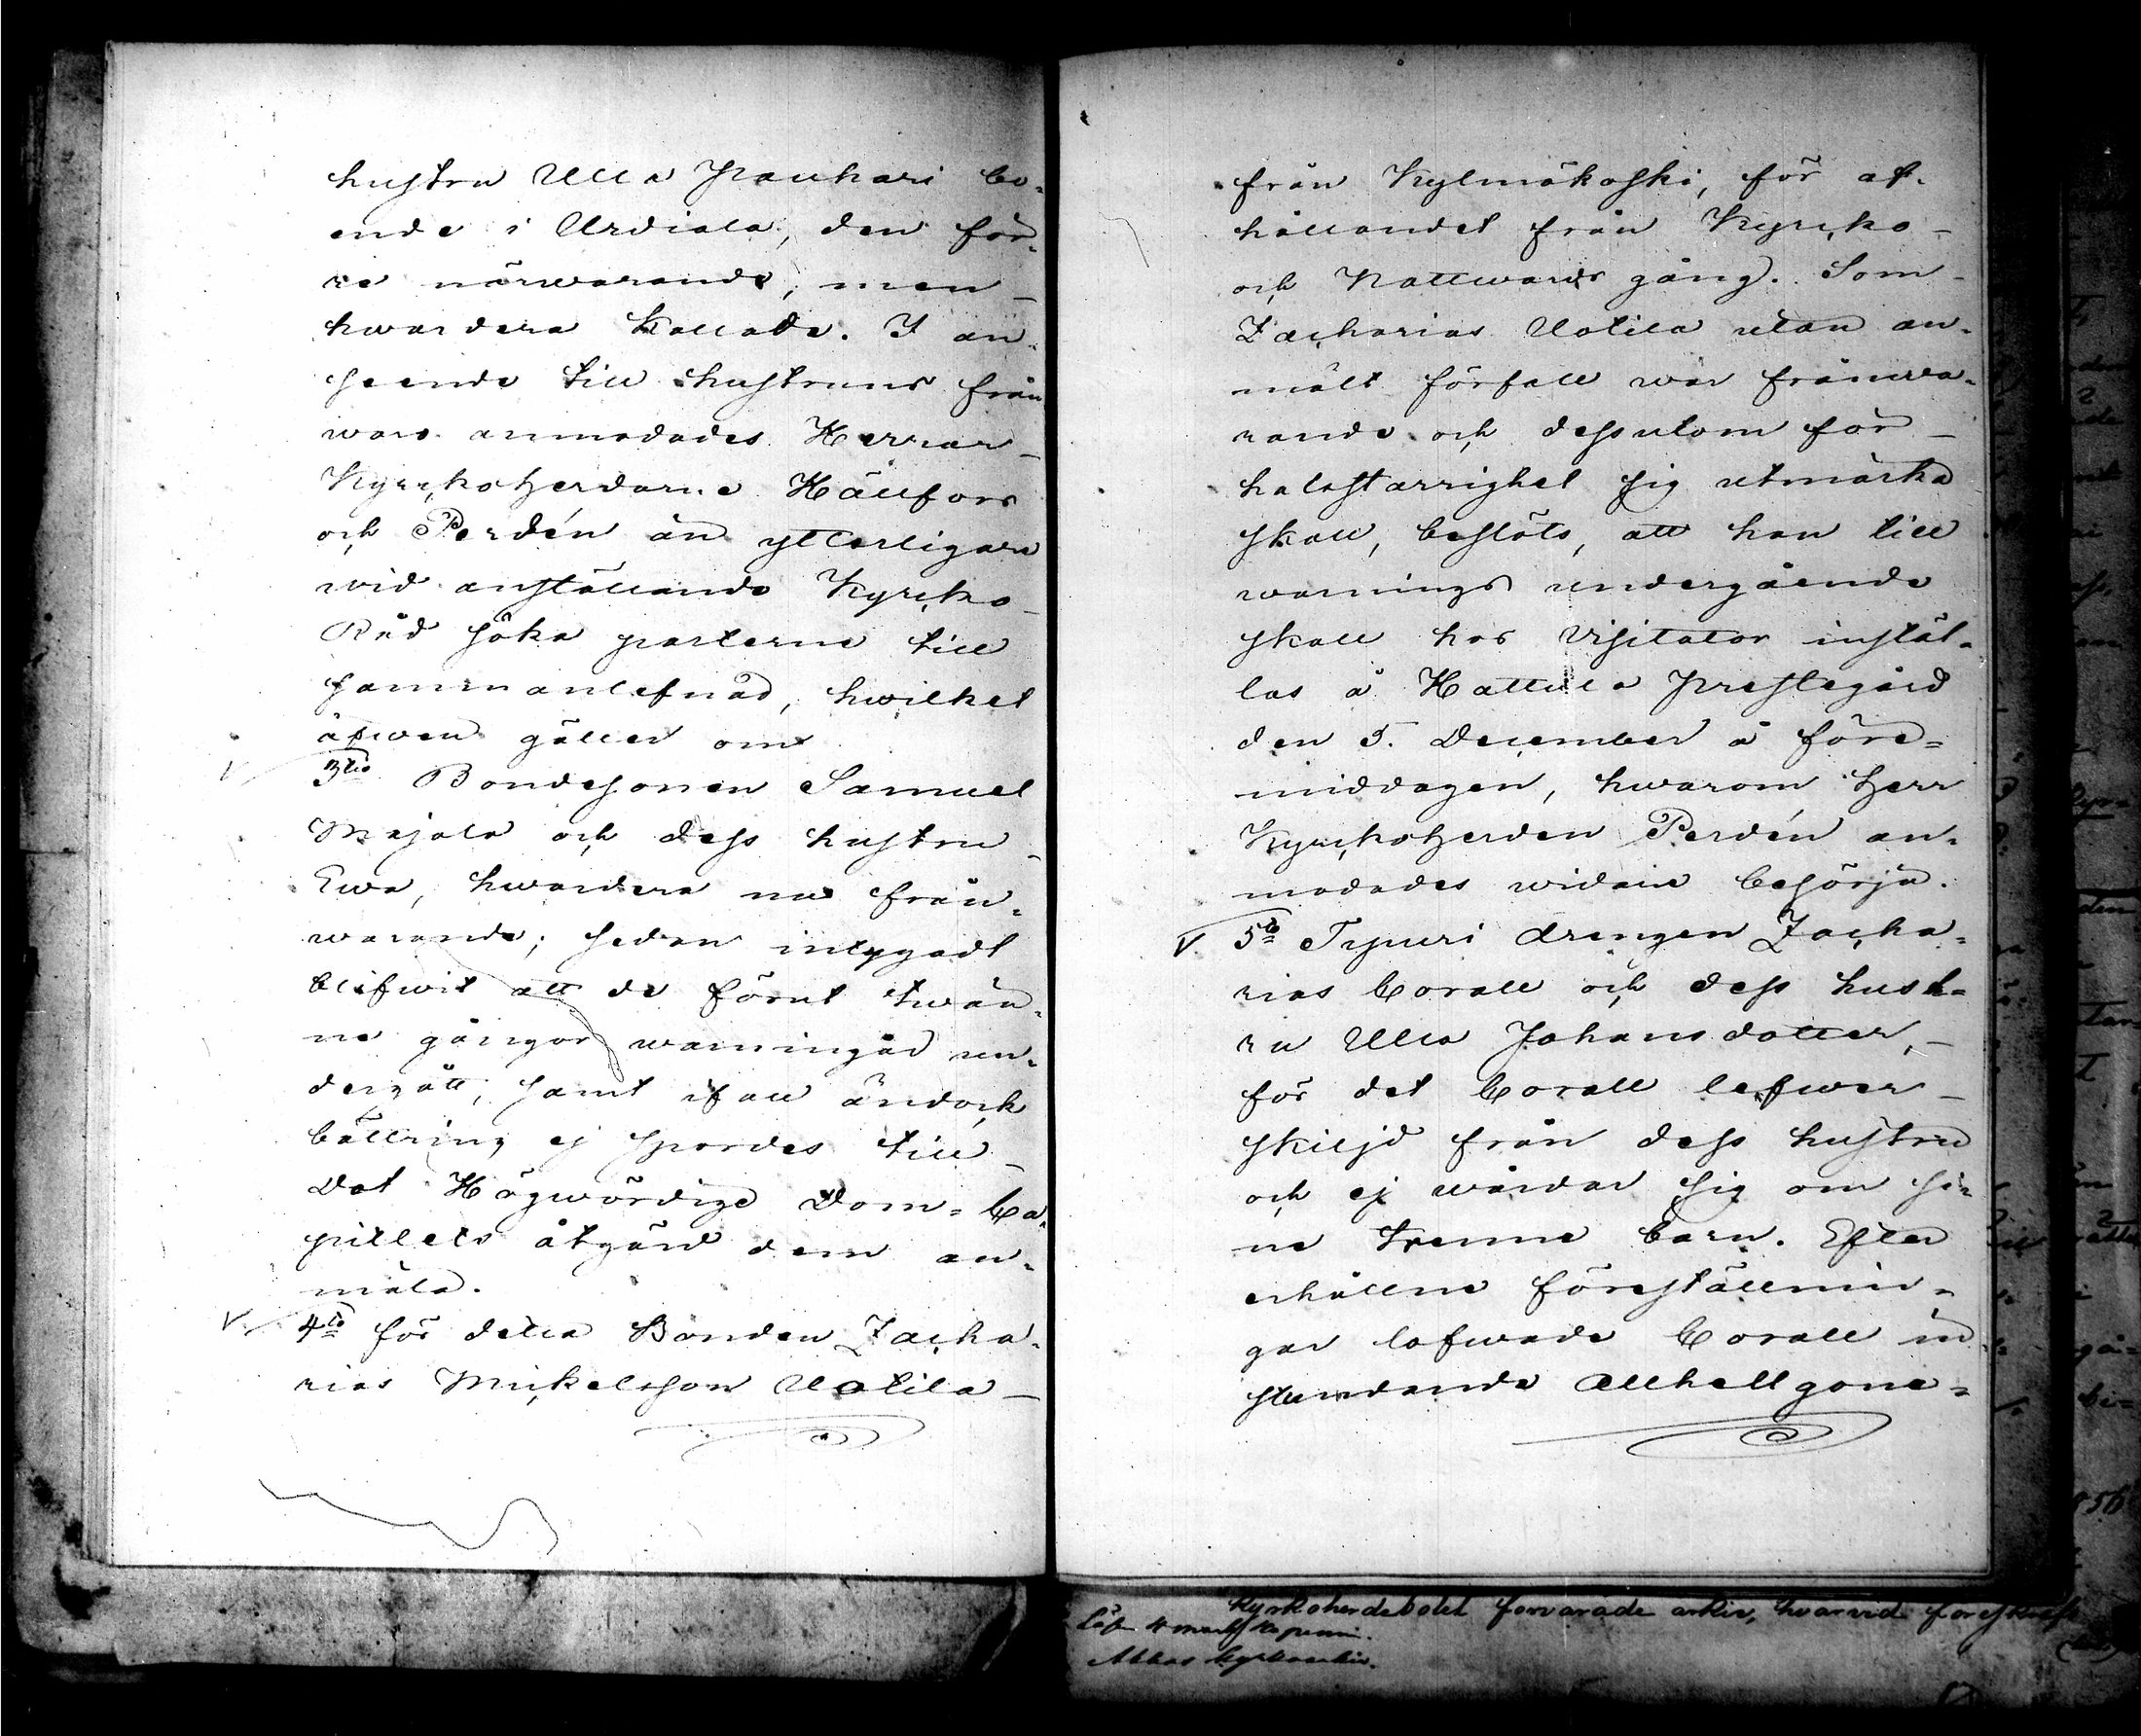 hustru Ulla Pauhari bo-
ende i Urdiala, den för-
re närwarande, men –
hwardera Kallade. I an-
seende till hustruns från-
waro anmodades Herrar –
Kyrckoherdarne Hällfors
och Perdén än ytterligare
wid anställande Kyrcko-
Råd söka parterne till
sammanlefnad, hwilket
äfwen gäller om
3tio Bondesonen Samuel
Majala och dess hustru –
Ewa, hwardera nu från-
warande; sedan intygadt
blifwit att de förut twän-
ne gångor warningar un-
dergått, samt ifall ändock
bättring ej spordes till –
Det Högwördige Dom-Ca-
pitlets åtgärd dem an-
mäla.
4to för detta Bonden Zacha-
rias Mickelsson Uotila –
från Kylmäkoski, för af-
hållandet från Kyrcko –
och Nattwards gång. Som –
Zacharias Uotila utan an-
mält förfall war frånwa-
rande och dessutom för –
halsstarrighet sig utmärka
skall, beslöts, att han till
warnings undergående
skall hos Visitator instäl-
las å Hattula Prestegård
den 5. December å före-
middagen, hwarom Herr
Kyrckoherden Perdén an-
modades widare besörja.
5to Tyuri drengen Zacha-
rias Corall och dess hust-
ru Ulla Johansdotter, –
för det Corall lefwer –
skiljd från dess hustru
och ej wårdar sig om si-
ne trenne barn. Efter
erhållne föreställnin-
gar lofwade Corall in
stundande Allhellgone-
Kyrkoherdebolet förvarade arkiv, hvarvid föreskrefs